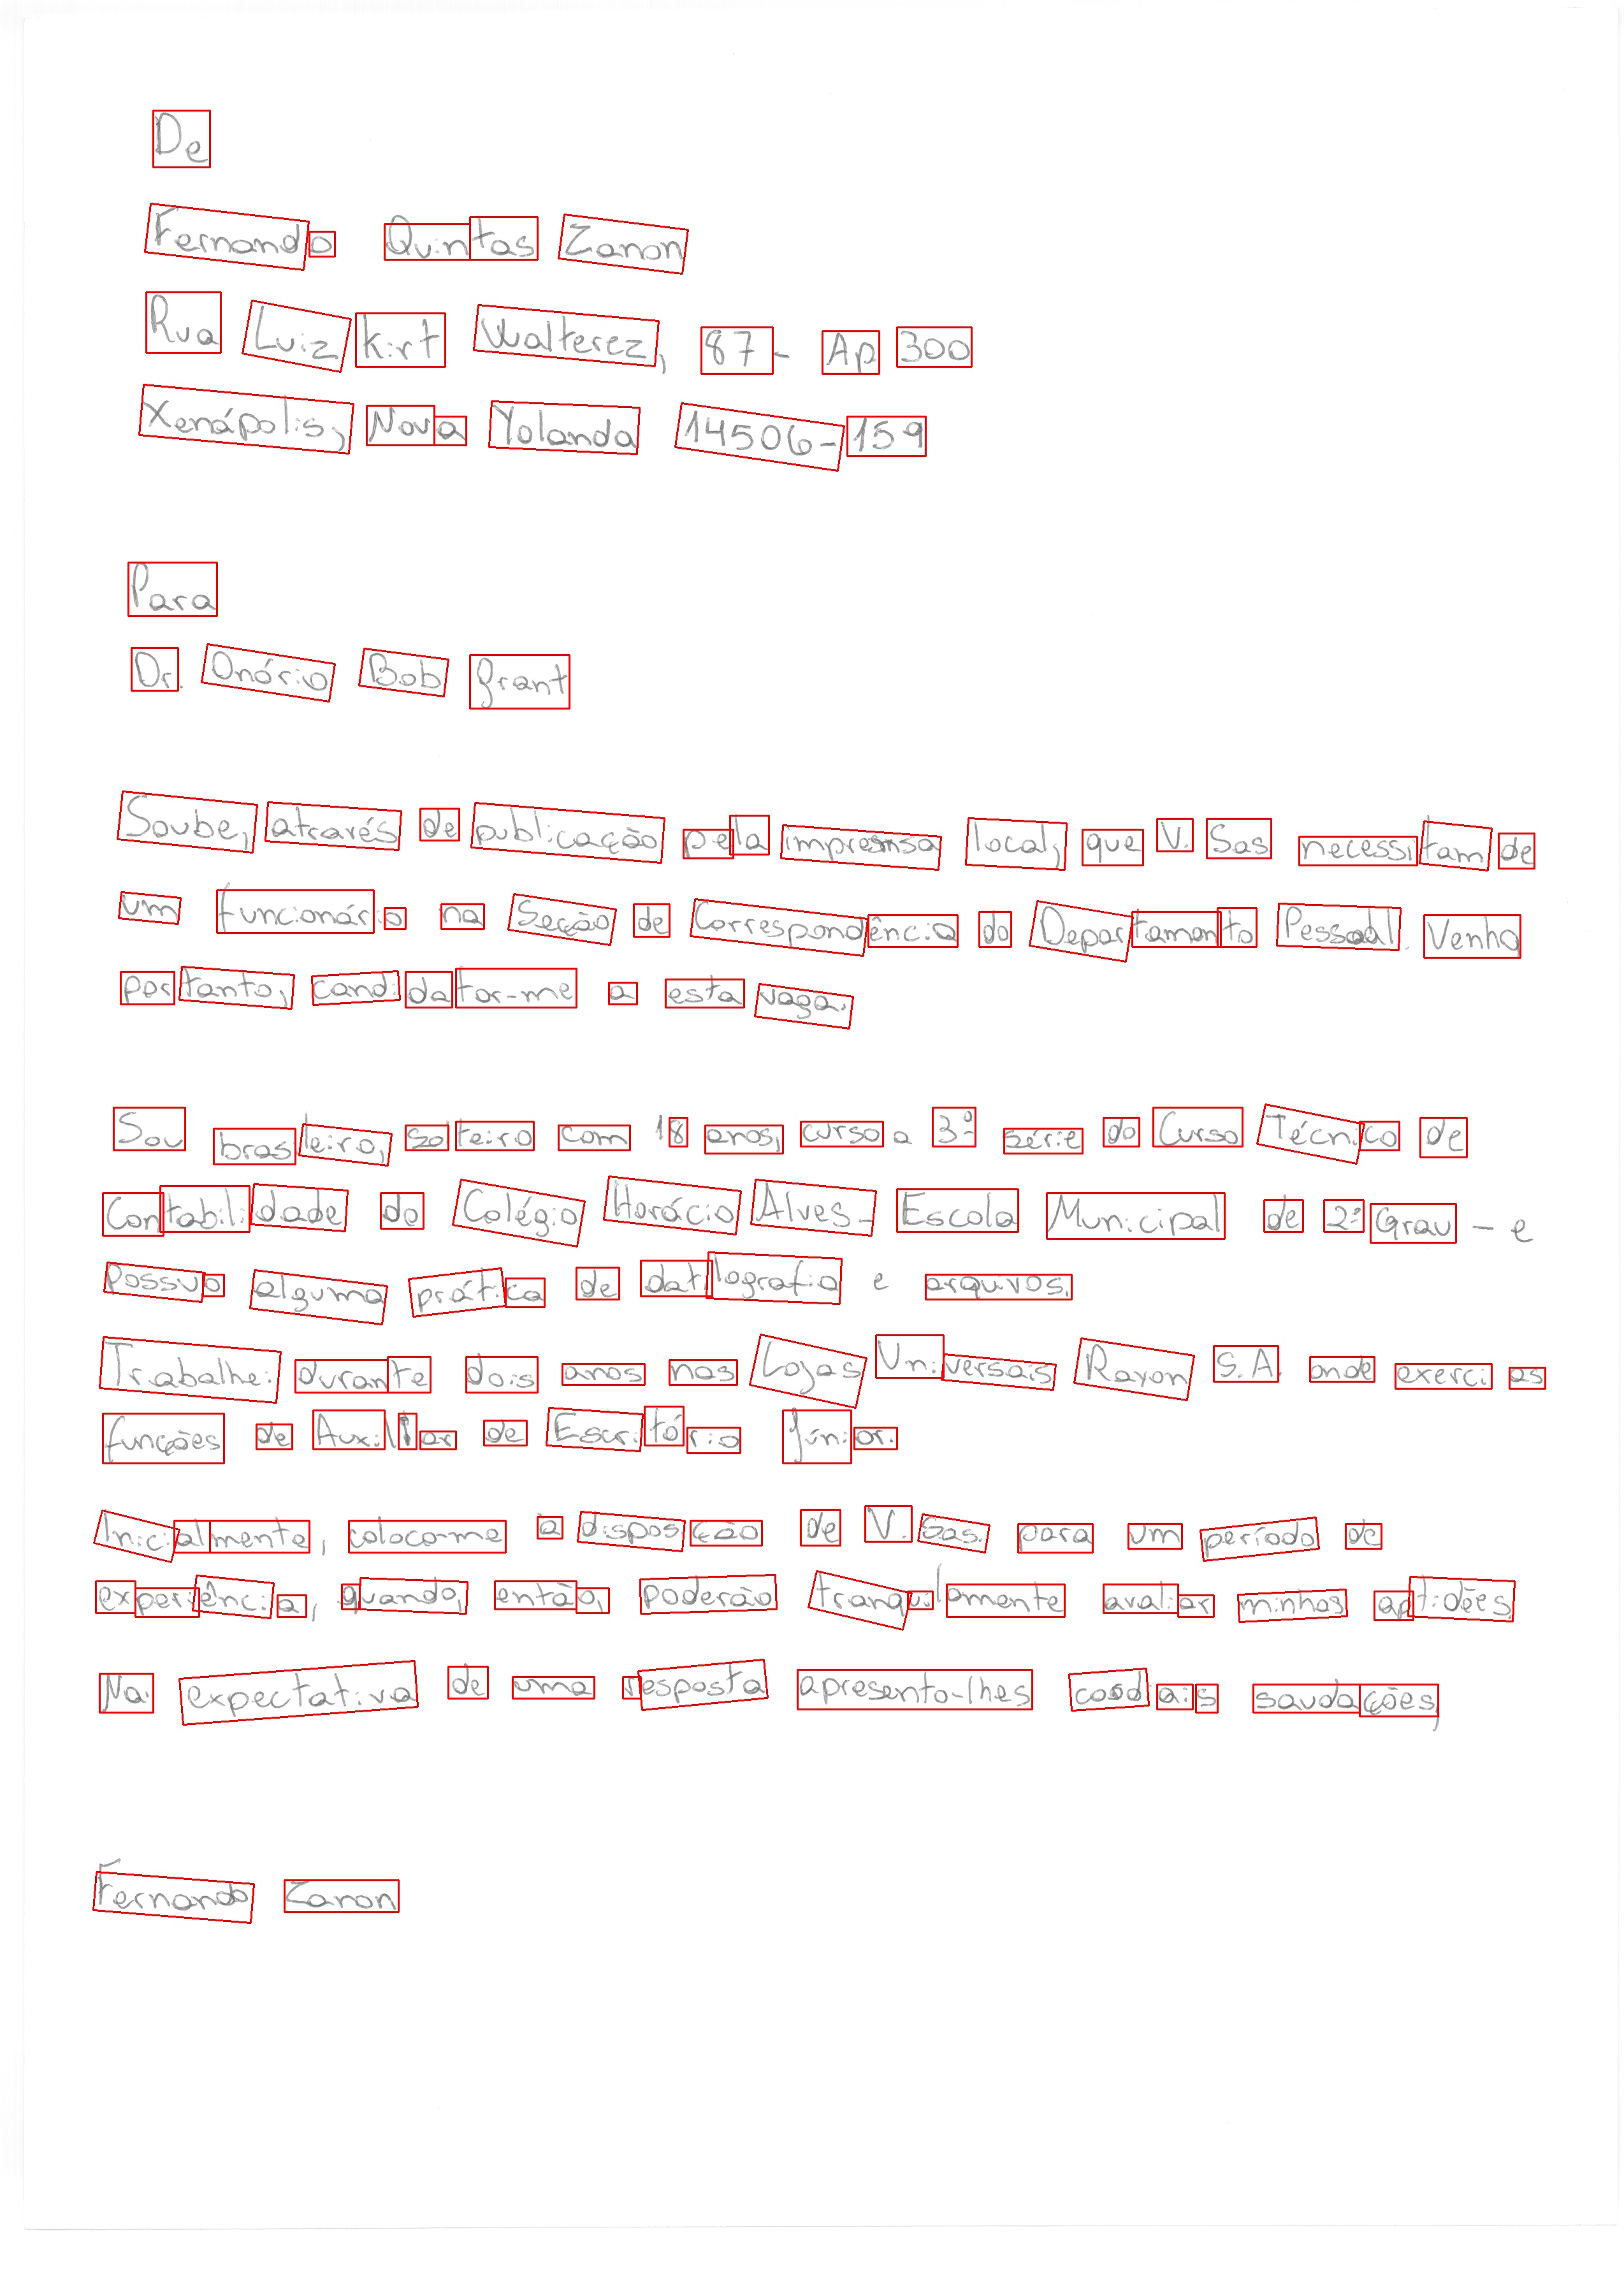 De
Fernando Quintas Zanon
Rua Luiz Kirt Walterez, 87- Ap 300
Xenápolis, Nova Yolanda 14506-159
Para
Dr. Onório Bob Grant
Soube, através de publicação pela imprensa local, que V. Sas necessitam de
um funcionário na Seção de Correspondência do Departamento Pessoal. Venho
portanto, candidatar-me a esta vaga.
Sou brasileiro, solteiro com 18 anos, curso a 3ª série do Curso Técnico de
Contabilidade do Colégio Horácio Alves- Escola Municipal de 2º Grau - e
possuo alguma prática de datilografia e arquivos.
Trabalhei durante dois anos nas Lojas Universais Rayon S.A. onde exerci as
funções de Auxiliar de Escritório Júnior.
Inicialmente, coloco-me à disposição de V. Sas. para um período de
experiência, quando, então, poderão tranquilamente avaliar minhas aptidões.
Na expectativa de uma resposta apresento-lhes cordiais saudações,
Fernando Zanon